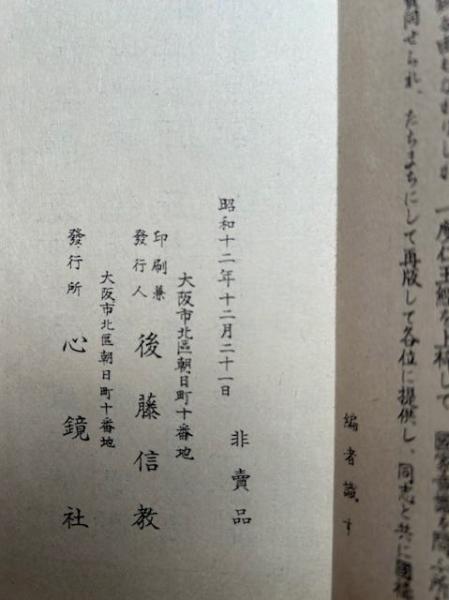 しが、一度仁王經を上梓して、國家意識を問ふ所
質問せられ、たちまちにして再版して各位に提供し、同志と共に國
編者識す
昭和十二年十二月二十一日 非賣品
大阪市北區朝日町十番地
印刷兼發行人 後藤信教
大阪市北區朝日町十番地
發行所 心鏡社